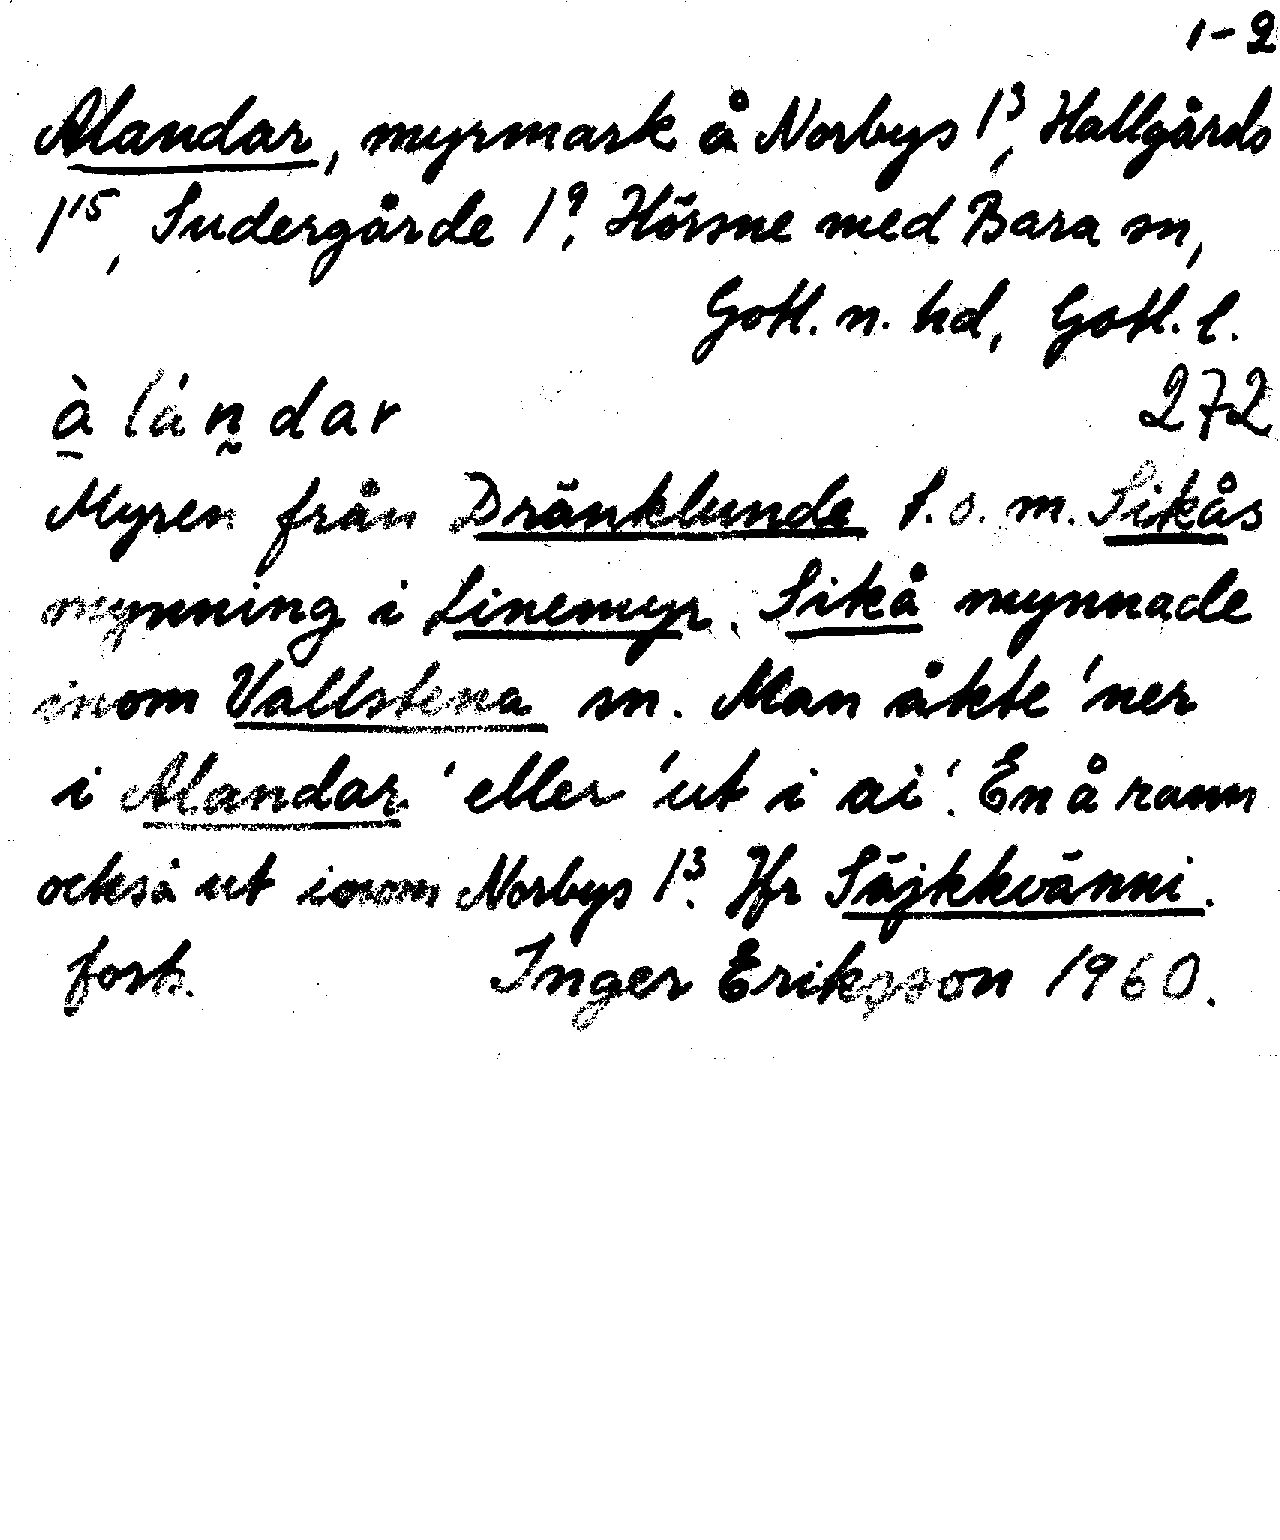 1-2
Alandar, myrmark å Norbys 1³, Hallgårds
1¹⁵, Sudergårde 1⁹, Hörsne med Bara sn,
Gotl. n. hd, Gotl. l.
272
Myren från Dränklunde t.o.m. Sikås
mynning i Linemyr. Sikå mynnade
inom Vallstena sn. Man åkte 'ner
i Alandar' eller 'ut i ai'. En å rann
också ut inom Norbys 1³. Jfr Säjkkvänni.
forts. Inger Eriksson 1960.